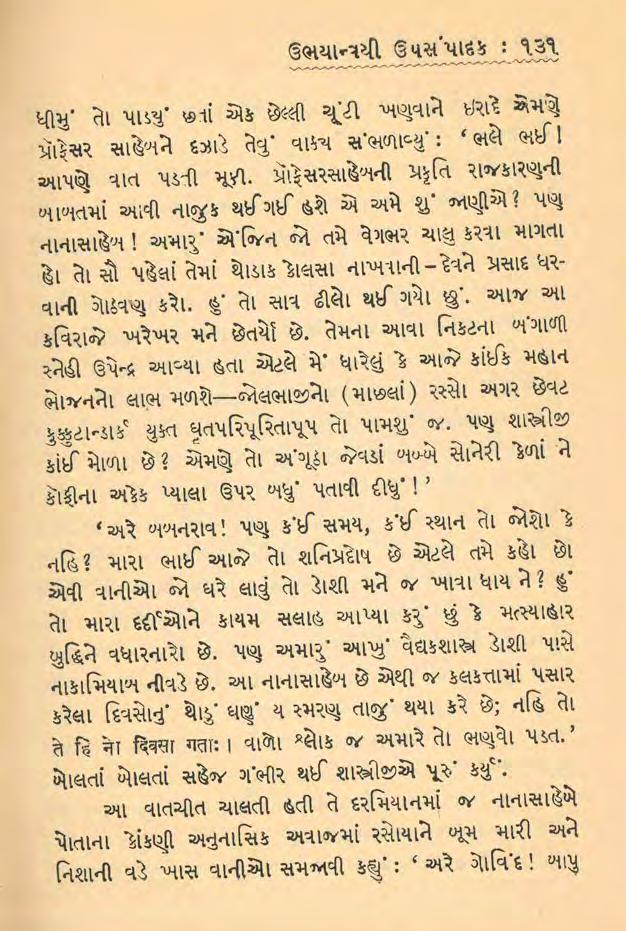 ઉભયાન્વયી ઉપસંપાદક : ૧૩૧
ધીમું તો પાડ્યું છતાં એક છેલ્લી ચૂંટી ખણવાને ઇરાદે એમણે
પ્રૉફેસર સાહેબને દઝાડે તેવું વાક્ય સંભળાવ્યું : ‘ ભલે ભઈ !
આપણે વાત પડતી મૂકી. પ્રૉફેસરસાહેબની પ્રકૃતિ રાજકારણની
બાબતમાં આવી નાજુક થઈ ગઈ હશે એ અમે શું જાણીએ ? પણ
નાનાસાહેબ ! અમારું એંજિન જો તમે વેગભર ચાલુ કરવા માગતા
હો તો સૌ પહેલાં તેમાં થોડાક કોલસા નાખવાની – દેવને પ્રસાદ ધર-
વાની ગોઠવણ કરો. હું તો સાવ ઢીલો થઈ ગયો છું. આજ આ
કવિરાજે ખરેખર મને છેતર્યો છે. તેમના આવા નિકટના બંગાળી
સ્નેહી ઉપેન્દ્ર આવ્યા હતા એટલે મેં ધારેલું કે આજે કાંઈક મહાન
ભોજનનો લાભ મળશે—જોલભાજીનો ( માછલાં ) રસ્સો અગર છેવટ
કુક્કુટાન્ડાર્ક યુક્ત ધૃતપરિપૂરિતાપૂપ તો પામશું જ. પણ શાસ્ત્રીજી
કાંઈ મોળા છે ? એમણે તો અંગૂઠા જેવડાં બબ્બે સોનેરી કેળાં ને
કૉફીના અકેક પ્યાલા ઉપર બધું પતાવી દીધું ! ’
‘ અરે બબનરાવ ! પણ કંઈ સમય, કંઈ સ્થાન તો જોશો કે
નહિ ? મારા ભાઈ આજે તો શનિપ્રદોષ છે એટલે તમે કહો છો
એવી વાનીઓ જો ઘરે લાવું તો ડોશી મને જ ખાવા ધાય ને ? હું
તો મારા દર્દીઓને કાયમ સલાહ આપ્યા કરું છું કે મત્સ્યાહાર
બુદ્ધિને વધારનારો છે. પણ અમારું આખું વૈદ્યકશાસ્ત્ર ડોશી પાસે
નાકામિયાબ નીવડે છે. આ નાનાસાહેબ છે એથી જ કલકત્તામાં પસાર
કરેલા દિવસોનું થોડું ઘણું ય સ્મરણ તાજું થયા કરે છે; નહિ તો
તે हि નો दिवसा गताः । વાળો શ્લોક જ અમારે તો ભણવો પડત. ’
બોલતાં બોલતાં સહેજ ગંભીર થઈ શાસ્ત્રીજીએ પૂરું કર્યું.
આ વાતચીત ચાલતી હતી તે દરમિયાનમાં જ નાનાસાહેબે
પોતાના કોંકણી અનુનાસિક અવાજમાં રસોયાને બૂમ મારી અને
નિશાની વડે ખાસ વાનીઓ સમજાવી કહ્યું : ‘ અરે ગોવિંદ ! બાપુ